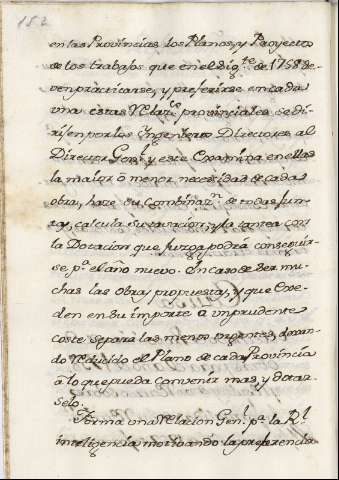 152
en las Provincias, los Planos, y Proyecto
de los trabajos que en el sig.te de 1758 de-
ven practicarse, y preferirse en cada
una estas Relaz.s provinciales se di-
rijen por los Ingenieros Directores al
Director Gen.l y este Examina en ellas
la maior o menor necesidad de cada
obra, haze su Combinaz.n de todas jun-
tas, calcula su tasacion, y la tantea con
la Dotacion que juzga podrá conseguir-
se p.a el año nuevo. En caso de ser mu-
chas las obras propuestas, y que Exce-
den en su importe a un prudente
coste separa las menos urgentes, dexan-
do reducido el Plano de cada Provincia
á lo que pueda convenir mas, y dotar-
selo.
Forma una Relacion Gen.l p.a la R.l
inteligencia motivando la preferencia